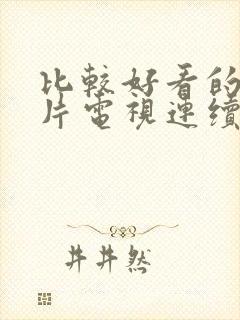 比較好看的
片電視連續
井井然